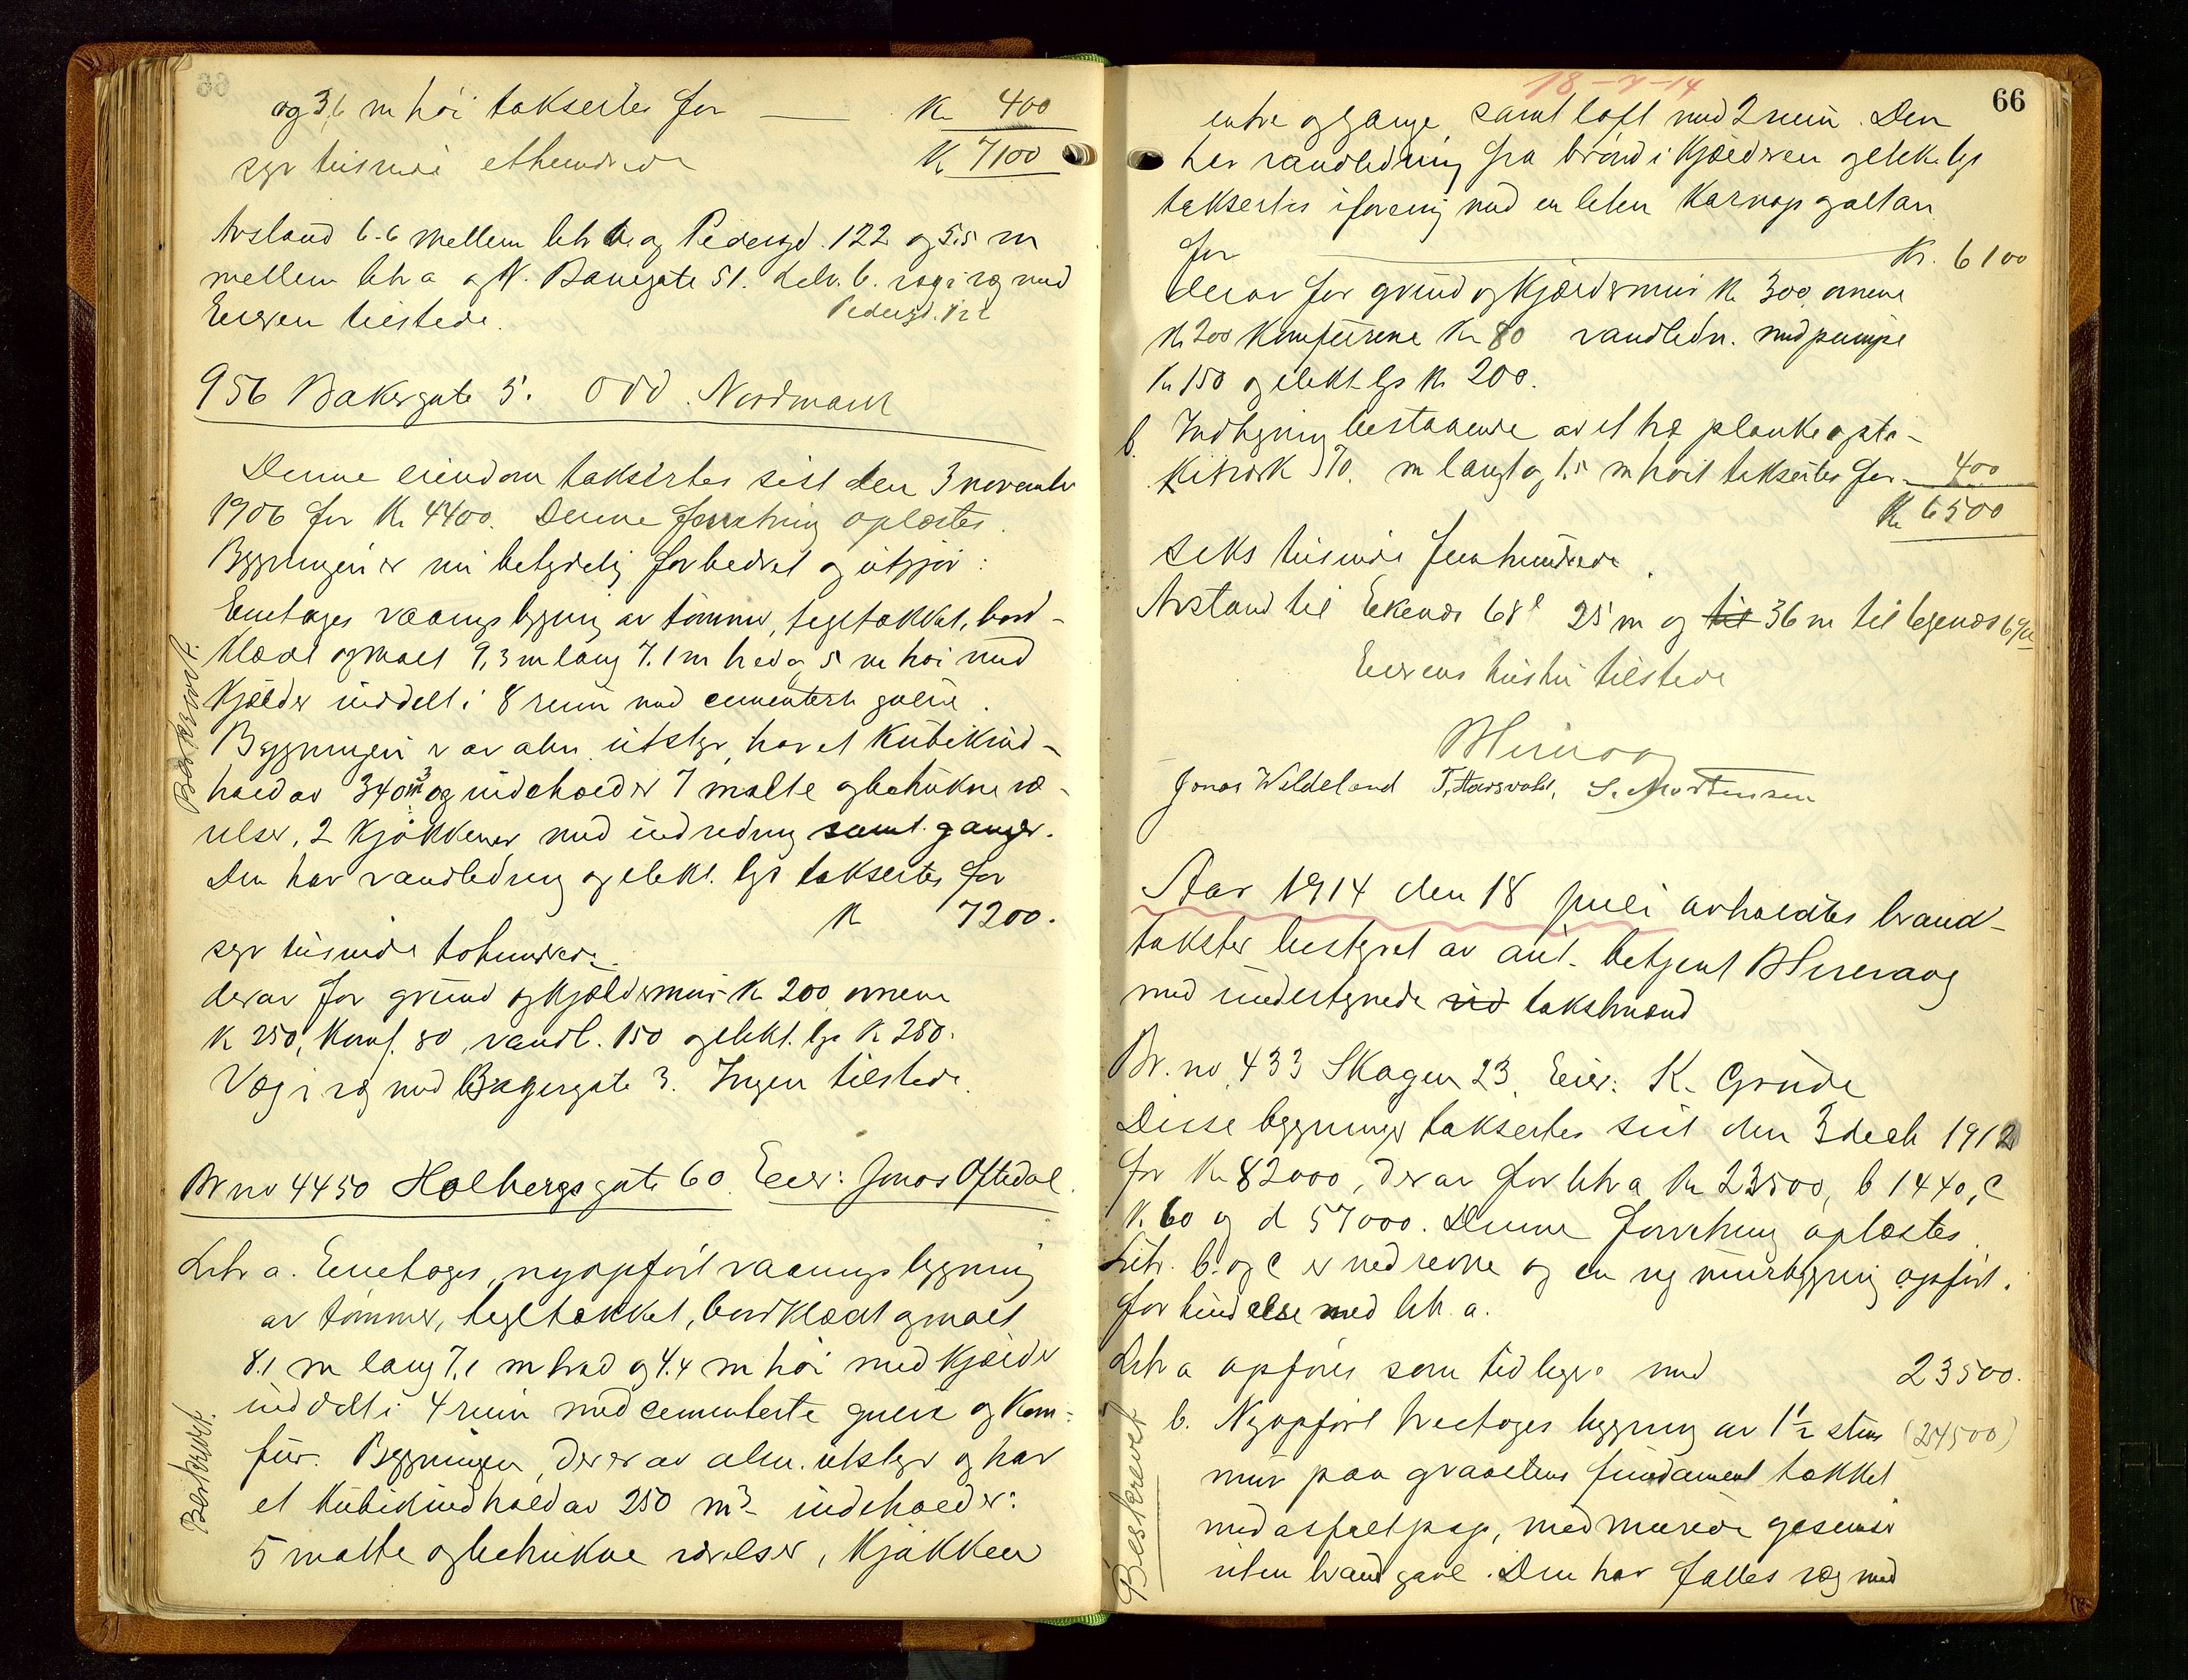 og 3,6 m høi taksertes for — Kr 400
syv tusinde ethundrede Kr 7100
Avstand 6.6 mellem litr b og Pedersgd. 122 og 5.5 m
mellem litr a og N. Banegate 51. Litr. b. væg i væg med
Eieren tilstede. Pedersgd. 122
956 Bakergate 5. Odd Nordmark
Denne eiendom taksertes sist den 3 november
1906 for Kr 4400. Denne forretning oplæstes.
Bygningen er nu betydelig forbedret og utgjør:
Enetages vaaningsbygning av tømmer, tegltækket, bord-
klædt og malt 9,3 m lang 7.1 m bred og 5 m høi med
Kjælder inddelt i 8 rum med cementerte gulve.
Bygningen er av alm. utstyr, har et Kubikind-
hold av 340 m³ og indeholder 7 malte og betrukne væ-
relser, 2 Kjøkkener med indredning samt ganger.
Den har vandledning og elekt. lys takseres for
Kr 7200.
syv tusinde tohundrede.
derav for grund og kjældermur Kr 200, ovnene
Kr 250, Komf. 80, vandl. 150 og elekt. lys Kr 280.
Væg i væg med Bagergate 3. Ingen tilstede.
Beskrevet.
Br no 4450 Holbergsgate 60. Eier: Jonas Oftedal.
Litr a. Enetages, nyopført vaaningsbygning
av tømmer, tegltækket, bordklædt og malt
8.1 m lang 7,1 m bred og 4.4 m høi med Kjælder
inddelt i 4 rum med cementerte gulve og Kom-
fur. Bygningen, der er av alm. utstyr og har
et Kubikindhold av 250 m³ indeholder:
5 malte og betrukne værelser, Kjøkken
Beskrevet.
18-7-14
66
entre og gange, samt loft med 2 rum. Den
har vandledning fra brønd i Kjælderen og elekt. lys
takseres i forening med en liten Karnap og altan
for Kr. 6100
derav for grund og Kjældermur Kr 300, ovnene
Kr 200 Komfurene Kr 80 vandledn. med pumpe
Kr 150 og elekt. lys Kr 200.
b. Indhegning bestaaende av et træ planke og sta-
kitværk 70. m langt og 1.5 m høit takseres for 400
Kr 6500
seks tusinde femhundrede.
Avstand til Eikenæs 68 25 m og til 36 m til
Eierens hustru tilstede
Jonas Wildeland S. Mortensen
Aar 1914 den 18 juli avholdtes brand-
takster bestyret av aut. betjent
med undertegnede vid takstmænd
Br. no 433 Skagen 23. Eier: K. Grude
Disse bygninger taksertes sist den 3 decbr 1912
for Kr 82000, derav for litr a Kr 23500, b 1440, c
Kr. 60 og d 57000. Denne forretning oplæstes.
Litr. b. og c er nedrevne og en ny murbygning opført i
forbindelse med litr. a.
Litr a opføres som tidligere med 23500.
b. Nyopført treetages bygning av 1½ stens (24500)
mur paa graastens fundament tækket
med asfaltpap, med murede gesimser
uten brandgavl. Den har fælles væg med
Beskrevet